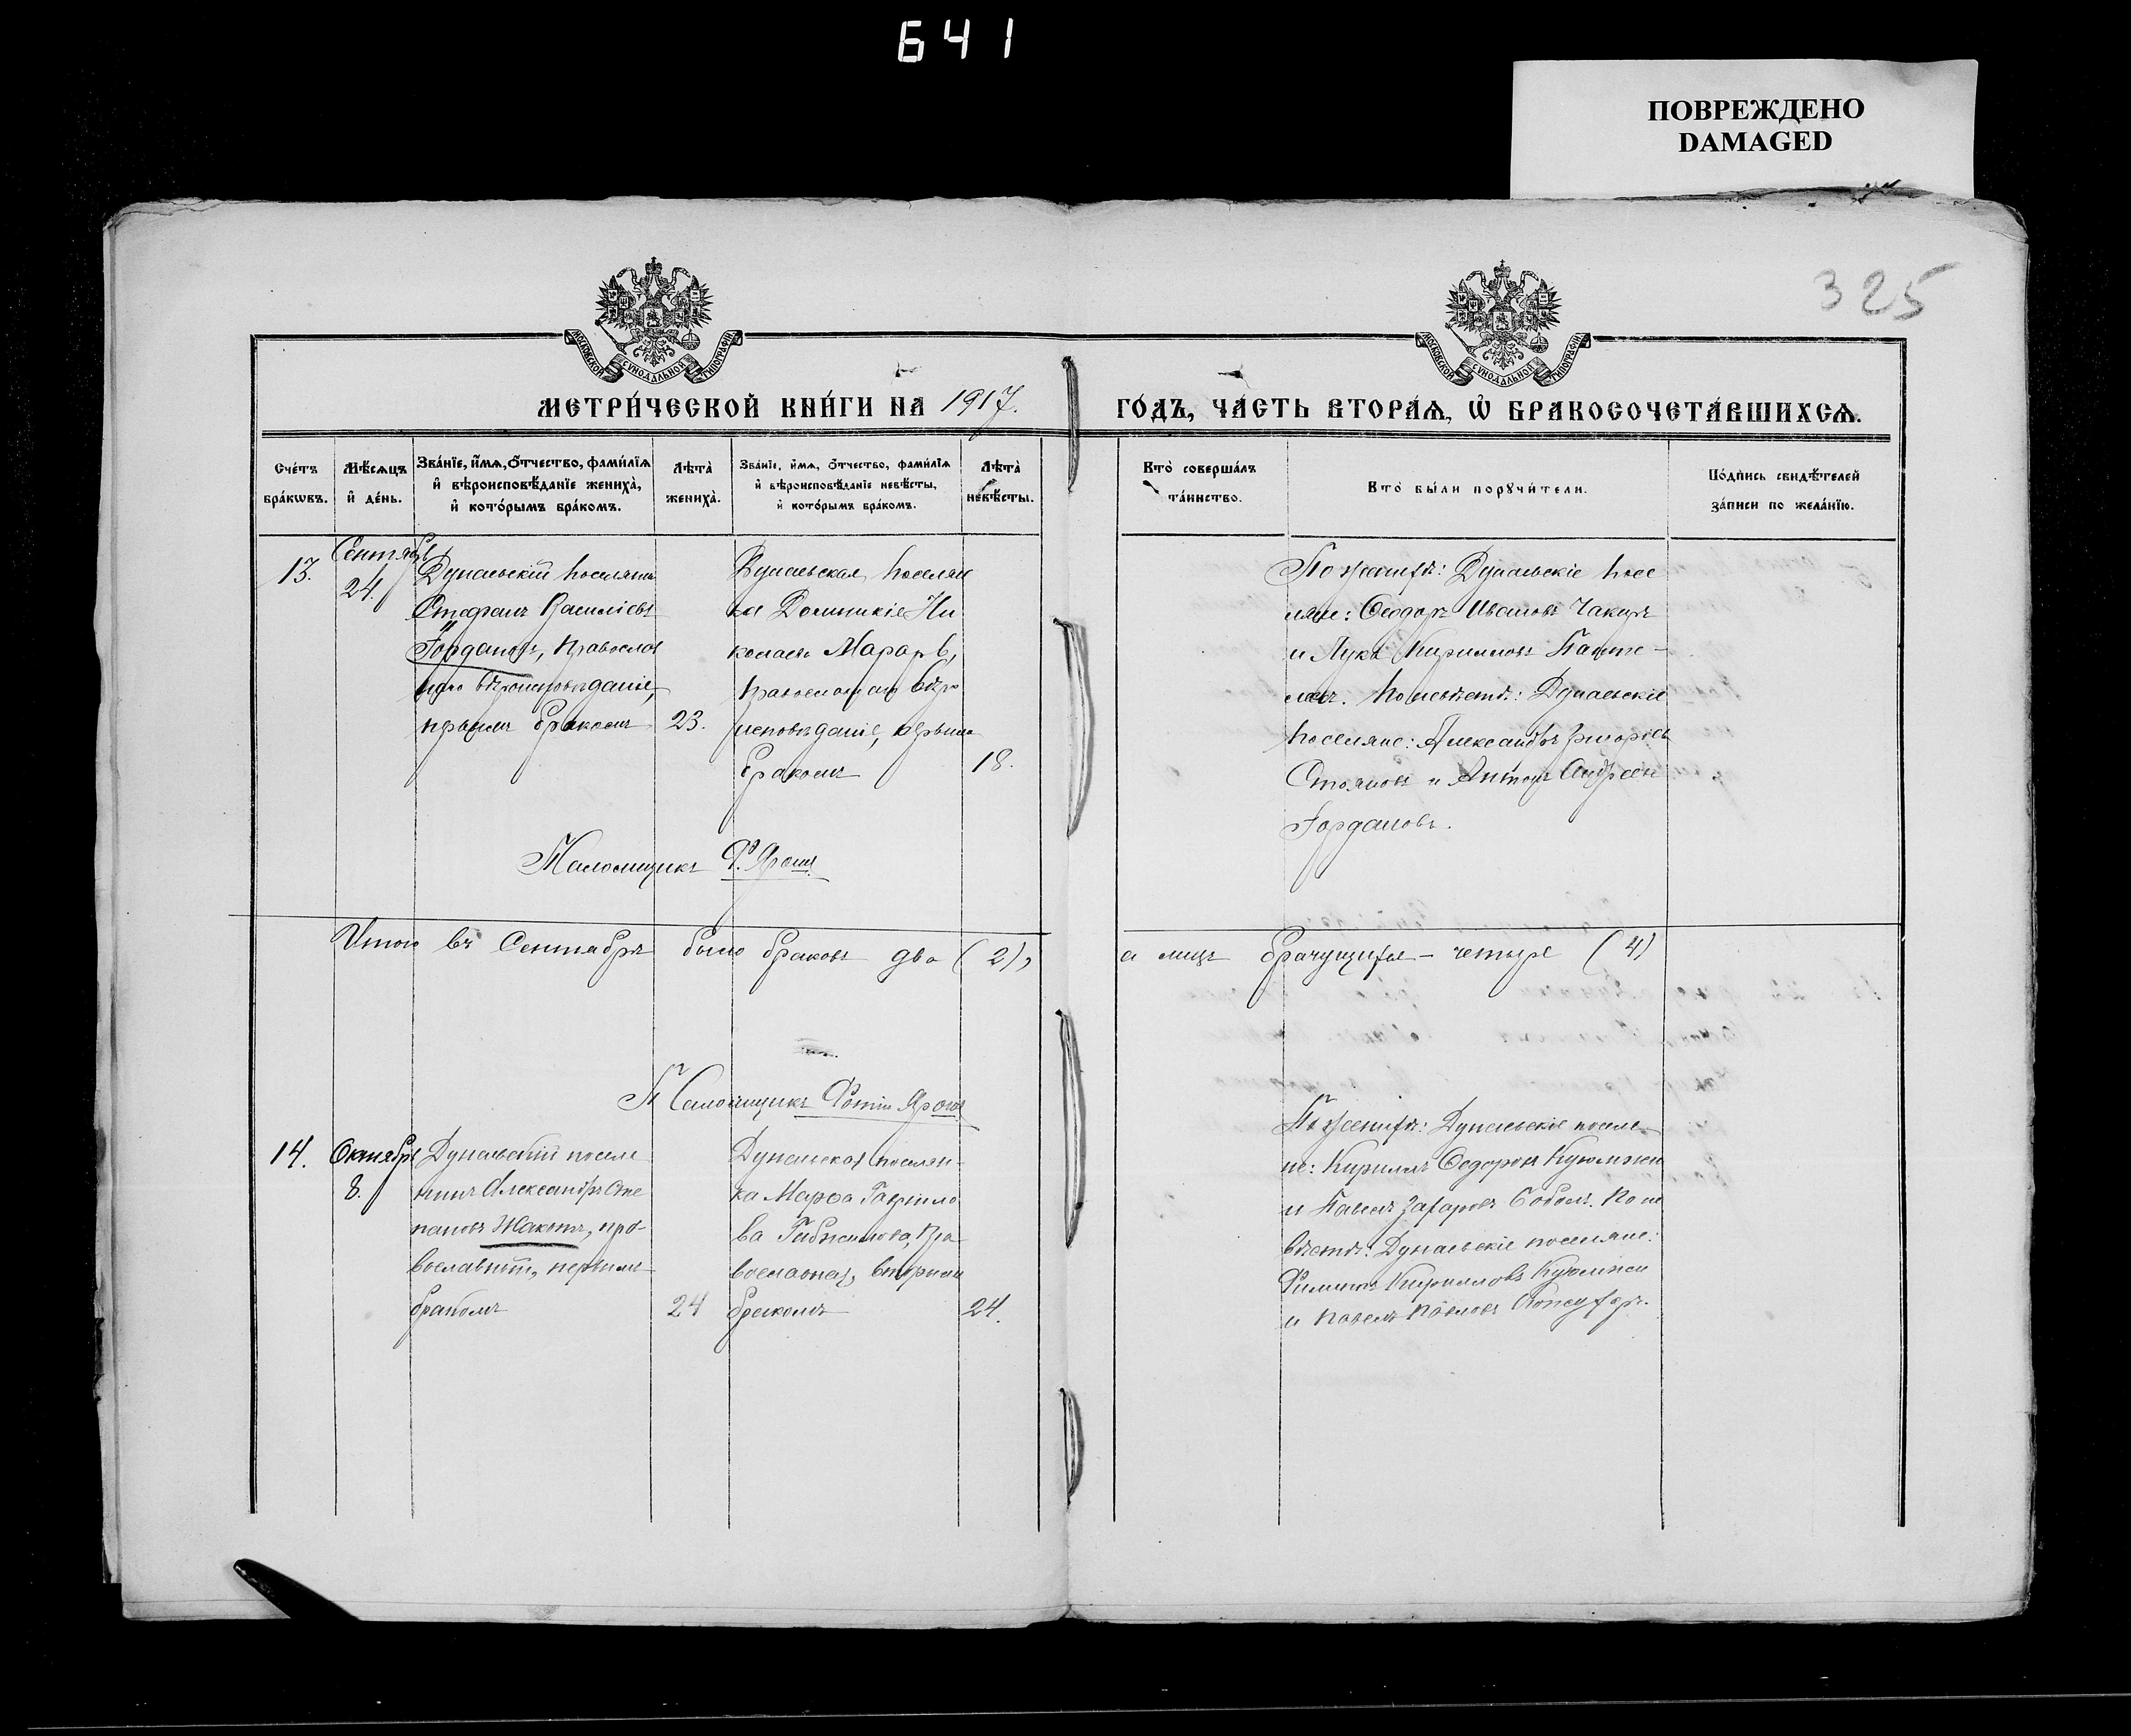 641
ПОВРЕЖДЕНО
DAMAGED
325
МОСКОВСКОЙ СѴНОДАЛЬНОЙ ТИПОГРАФІИ
МОСКОВСКОЙ СѴНОДАЛЬНОЙ ТИПОГРАФІИ
МЕТРИ́ЧЕСКОЙ КНИ́ГИ НА 1917.
ГО́ДЪ, ЧА́СТЬ ВТОРА́Ѧ, Ѡ БРАКОСОЧЕТА́ВШИХСѦ.
Сче́тъ
бра́кѡвъ.
Мѣ́сѧцъ
и҆ де́нь.
Зва́нїе, и҆́мѧ, ѻ҆́тчество, фами́лїѧ
и҆ вѣроисповѣ́данїе жениха̀,
и҆ кото́рымъ бра́комъ.
Лѣта̀
жениха̀.
Зва́нїе, и҆́мѧ, ѻ҆́тчество, фами́лїѧ
и҆ вѣроисповѣ́данїе невѣ́сты,
и҆ кото́рымъ бра́комъ.
Лѣта̀
невѣ́сты.
Кто̀ соверша́лъ
та́инство.
Кто̀ бы́ли порꙋчи́тели.
По́дпись свидѣ́телей
за́писи по жела́нїю.
13.
Сентябрь
24.
Дунаевскій поселянинъ
Стефанъ Василіевъ
Іордановъ, православ
наго вѣроисповѣданіе,
первымъ бракомъ
23.
Дунаевская поселян
ка Доминикія Ни
колаева
православнаго вѣро
исповѣданіе, первымъ
бракомъ
18.
По женихѣ: Дунаевскіе посе
ляне: Ѳеодоръ Ивановъ Чакиръ
и Лука Кирилловъ Панте-
леевъ. По невѣстѣ: Дунаевскіе
поселяне: Александръ Григорьевъ
Стояновъ и Антонъ Андреевъ
Іордановъ.
Псаломщикъ Ф. Ярош
Итого въ Сентябрѣ было браковъ два (2),
а лицъ брачущихся - четыре (4)
Псаломщикъ Фотій Ярош
14.
Октябрь
8.
Дунаевскій поселя
нинъ Александръ Сте
пановъ Жаконъ, пра-
вославный, первымъ
бракомъ
24
Дунаевская поселян-
ка Марѳа Гаврило
ва, пра
вославная, вторымъ
бракомъ
24.
По женихѣ: Дунаевскіе поселя
не: Кириллъ Ѳедоровъ Куюмжи
и Павелъ Захаровъ Соболъ. По не
вѣстѣ: Дунаевскіе поселяне:
Филиппъ Кирилловъ Куюмжи
и Павелъ Павловъ